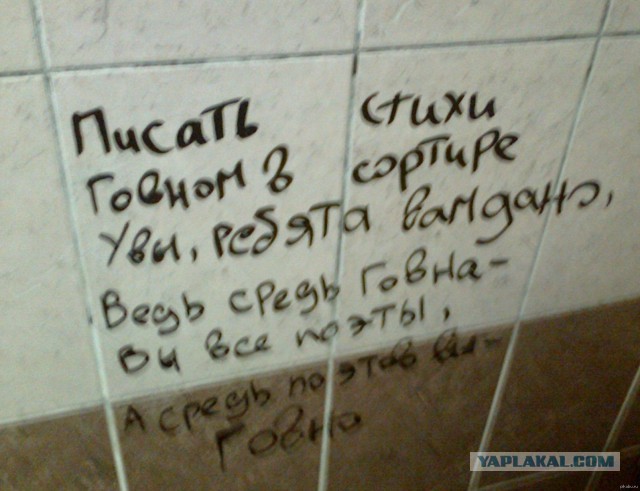 Писать стихи
говном в сортире
Увы, ребята вам дано,
Ведь средь говна-
вы все поэты,
А средь поэтов вы-
Говно
YAPLAKAL.COM